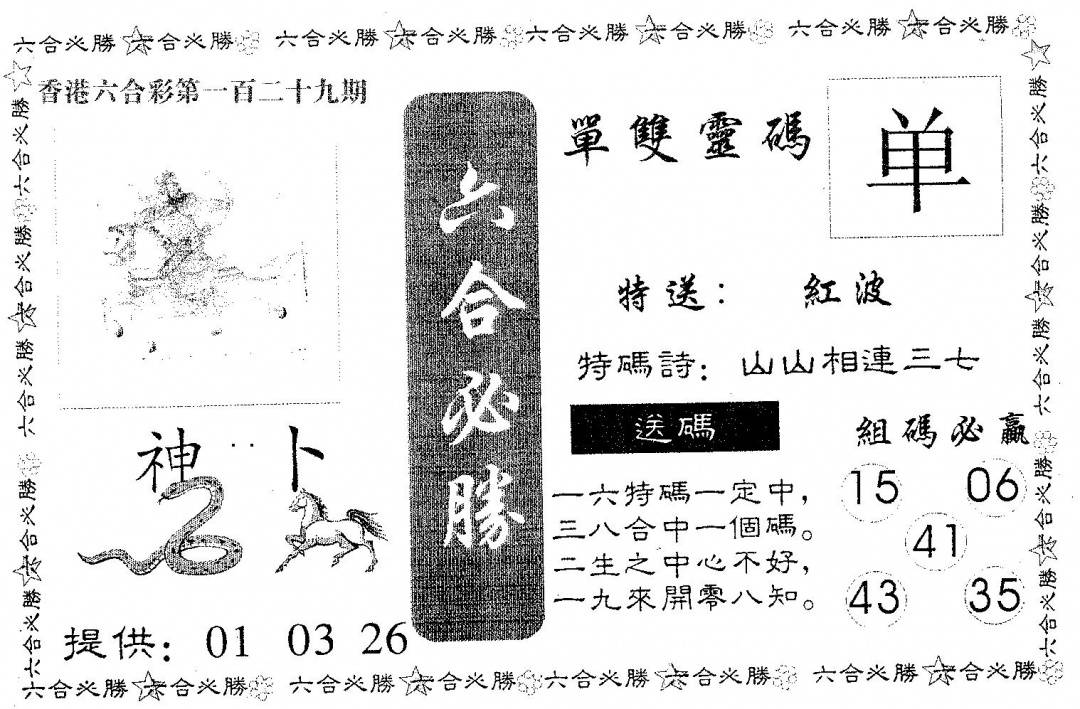 六合必勝 六合必勝 六合必勝 六合必勝 六合必勝 六合必勝 六合必勝 六合必勝
香港六合彩第一百二十九期
神 卜
提供：01 03 26
六合必勝
單雙靈碼
单
特送：紅波
特碼詩：山山相連三七
送碼
一六特碼一定中，
三八合中一個碼。
二生之中心不好，
一九來開零八知。
組碼必贏
15 06
41
43 35
六合必勝 六合必勝 六合必勝 六合必勝 六合必勝
六合必勝 六合必勝 六合必勝 六合必勝 六合必勝
六合必勝 六合必勝 六合必勝 六合必勝 六合必勝 六合必勝 六合必勝 六合必勝